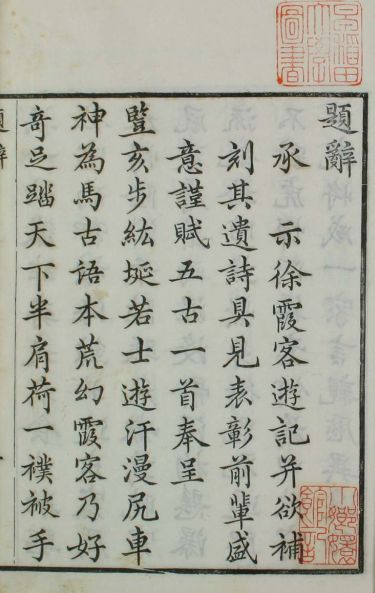 早稻田
大學
圖書
題辭
承 示徐霞客遊記并欲補
刻其遺詩具見表彰前輩盛
意謹賦五古一首奉呈
豎亥步紘埏若士遊汗漫尻車
神為馬古語本荒幻霞客乃好
奇足踏天下半肩荷一襆被手